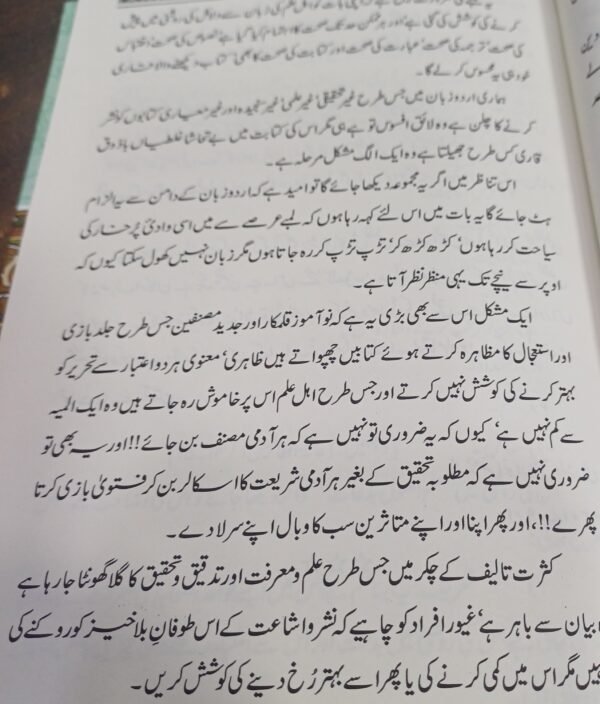 کرنے کی کوشش کی گئی ہے اور ہر ممکن حد تک صحت کا اہتمام کیا گیا ہے نصوص کی صحت
کی صحت ترجمہ کی صحت عبارت کی صحت اور کتابت کی صحت کا بھی کتاب دیکھنے والا
خود ہی یہ محسوس کرلے گا۔
ہماری اردو زبان میں جس طرح غیر تحقیقی‘ غیر علمی‘ غیر سنجیدہ اور غیر معیاری کتابوں کو نشر
کرنے کا چلن ہے وہ لائق افسوس تو ہے ہی مگر اس کی کتابت میں بے تحاشا غلطیاں باذوق
قاری کس طرح جھیلتا ہے وہ ایک الگ مشکل مرحلہ ہے۔
اس تناظر میں اگر یہ مجموعہ دیکھا جائے گا تو امید ہے کہ اردو زبان کے دامن سے یہ الزام
ہٹ جائے گا یہ بات میں اس لئے کہہ رہا ہوں کہ لمبے عرصے سے میں اسی وادیٔ پُر خار کی
سیاحت کر رہا ہوں‘ کڑھ کڑھ کر‘ تڑپ تڑپ کر رہ جاتا ہوں مگر زبان نہیں کھول سکتا کیوں کہ
اوپر سے نیچے تک یہی منظر نظر آتا ہے۔
ایک مشکل اس سے بھی بڑی یہ ہے کہ نو آموز قلمکار اور جدید مصنفین جس طرح جلد بازی
اور استعجال کا مظاہرہ کرتے ہوئے کتابیں چھپواتے ہیں ظاہری‘ معنوی ہر دو اعتبار سے تحریر کو
بہتر کرنے کی کوشش نہیں کرتے اور جس طرح اہل علم اس پر خاموش رہ جاتے ہیں وہ ایک المیہ
سے کم نہیں ہے‘ کیوں کہ یہ ضروری تو نہیں ہے کہ ہر آدمی مصنف بن جائے!! اور یہ بھی تو
ضروری نہیں ہے کہ مطلوبہ تحقیق کے بغیر ہر آدمی شریعت کا اسکالر بن کر فتویٰ بازی کرتا
پھرے!!، اور پھر اپنا اور اپنے متاثرین سب کا وبال اپنے سر لادے۔
کثرت تالیف کے چکر میں جس طرح علم و معرفت اور تدقیق و تحقیق کا گلا گھونٹا جا رہا ہے
بیان سے باہر ہے‘ غیور افراد کو چاہیے کہ نشر و اشاعت کے اس طوفانِ بلا خیز کو روکنے کی
مگر اس میں کمی کرنے کی یا پھر اسے بہتر رُخ دینے کی کوشش کریں۔